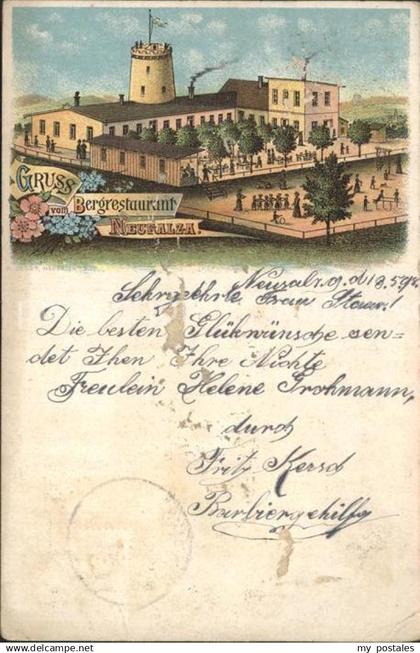 GRUSS
vom Bergrestaurant
NEUSALZA.
d 18.5.98.
Sehrgeehrte Frau
Die besten Glükwünsche sen-
det Ihen Ihre Nichte
Freulein Helene Grohmann,
durch
Fritz Kersch
Barbiergehilfe
© my postales .com